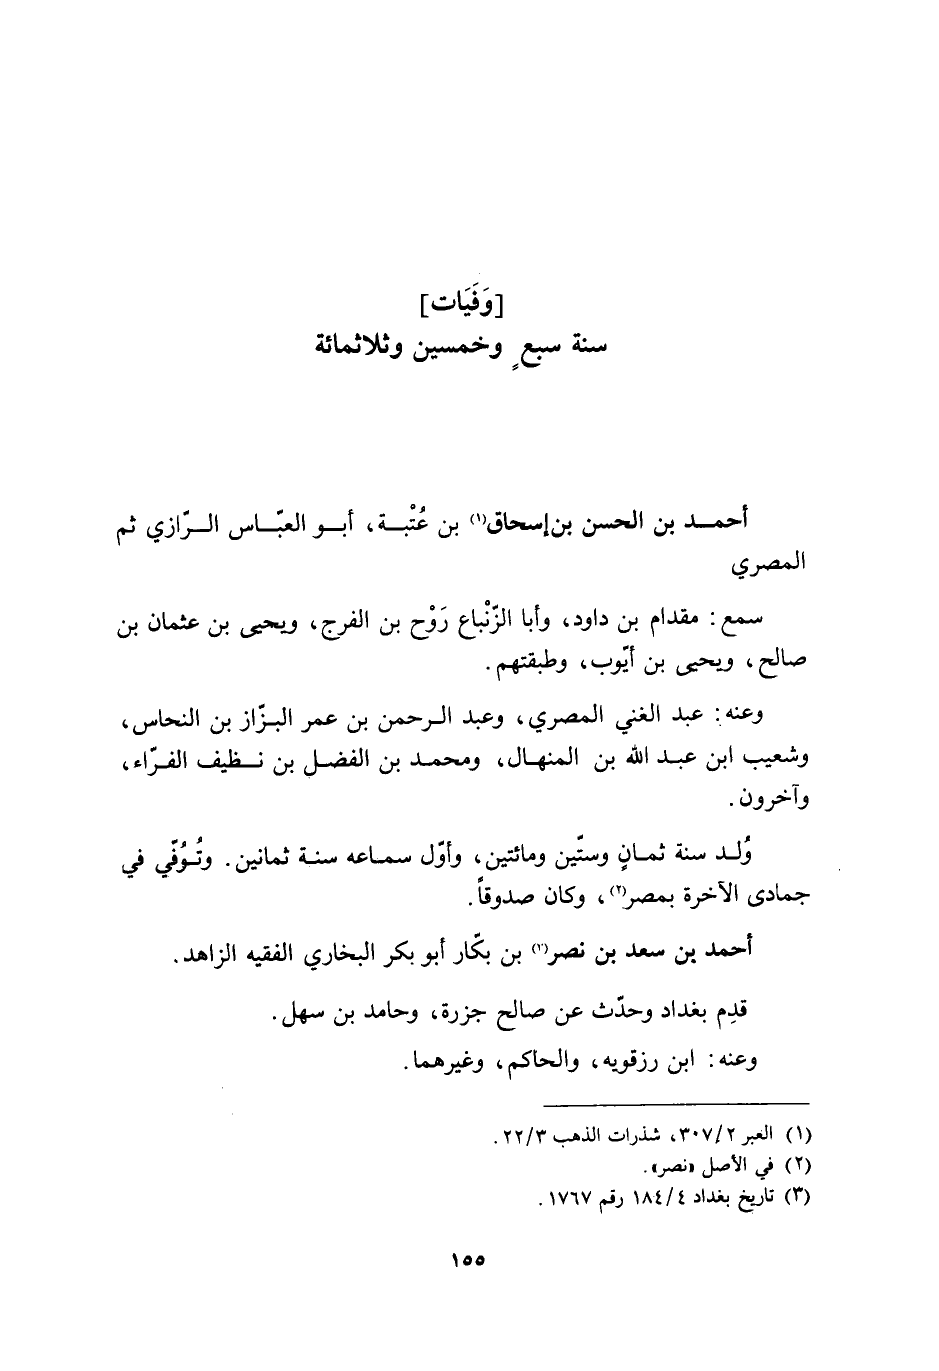 [وَفَيَات]
سنة سبعٍ وخمسين وثلاثمائة
أحمـد بن الحسن بن إسحاق(١) بن عُتْبـة، أبـو العبّـاس الـرّازي ثم
المصري
سمع: مقدام بن داود، وأبا الزّنْباع رَوْح بن الفرج، ويحيى بن عثمان بن
صالح، ويحيى بن أيّوب، وطبقتهم.
وعنه: عبد الغني المصري، وعبد الرحمن بن عمر البزّاز بن النحاس،
وشعيب ابن عبد الله بن المنهال، ومحمد بن الفضل بن نظيف الفرّاء،
وآخرون.
وُلد سنة ثمانٍ وستّين ومائتين، وأوّل سماعه سنة ثمانين. وتُوُفّي في
جمادى الآخرة بمصر(٢)، وكان صدوقاً.
أحمد بن سعد بن نصر(٣) بن بكّار أبو بكر البخاري الفقيه الزاهد.
قدِم بغداد وحدّث عن صالح جزرة، وحامد بن سهل.
وعنه: ابن رزقويه، والحاكم، وغيرهما.
(١) العبر ٣٠٧/٢، شذرات الذهب ٢٢/٣.
(٢) في الأصل «نصر».
(٣) تاريخ بغداد ١٨٤/٤ رقم ١٧٦٧.
١٥٥